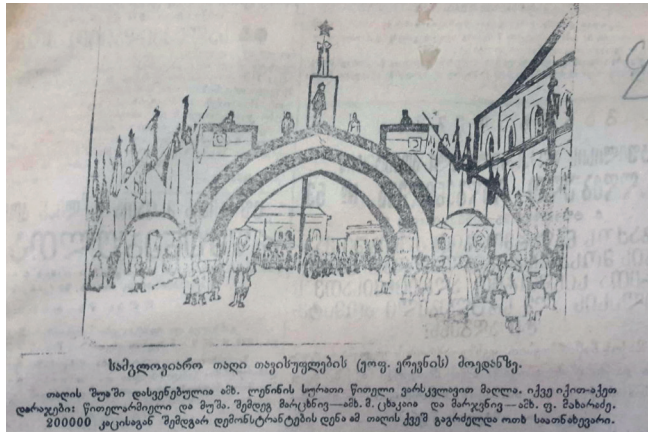 სამგლოვიარო თაღი თავისუფლების (ყოფ. ერევნის) მოედანზე.
თაღის შუაში დასვენებულია ამხ. ლენინის სურათი წითელი ვარსკვლავით მაღლა. იქვე იქით-აქეთ
დარაჯები: წითელარმიელი და მუშა. შემდეგ მარცხნივ—ამხ. მ. ცხაკაია და მარჯვნივ—ამხ. ფ. მახარაძე.
200000 კაცისაგან შემდგარ დემონსტრანტების დენა ამ თაღის ქვეშ გაგრძელდა ოთხ საათნახევარი.